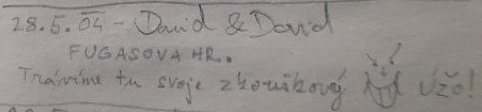 28.5.04 - David & David
FUGASOVA HR.
Trávíme tu svoje zkouškový
Užo!